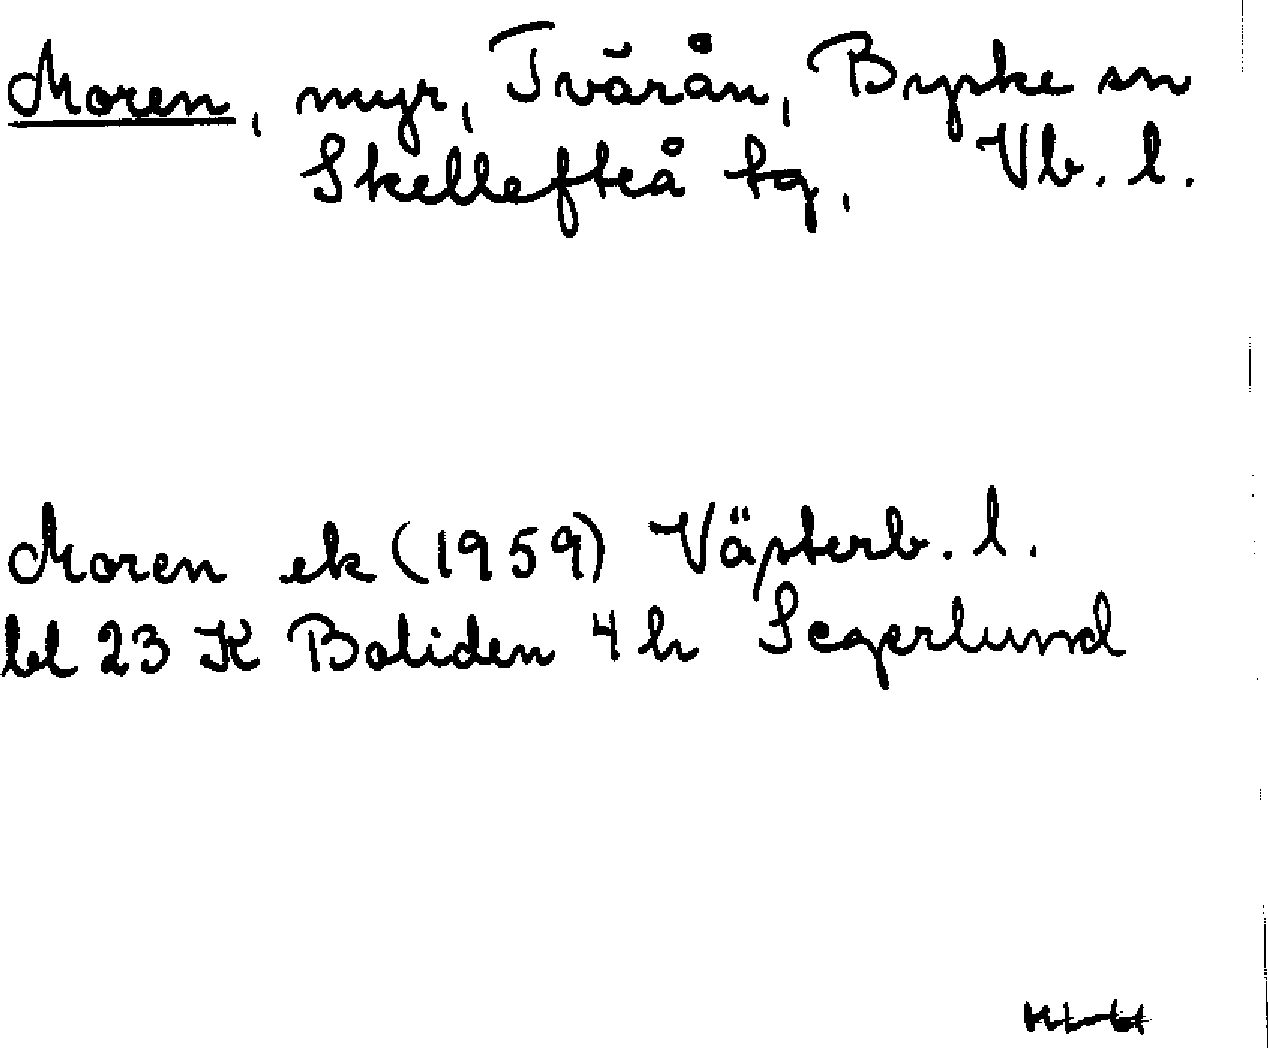 Moren, myr, Tvärån, Byske sn
Skellefteå tg, Vb. l.
Moren ek (1959) Västerb. l.
bl 23 K Boliden 4 h Segerlund